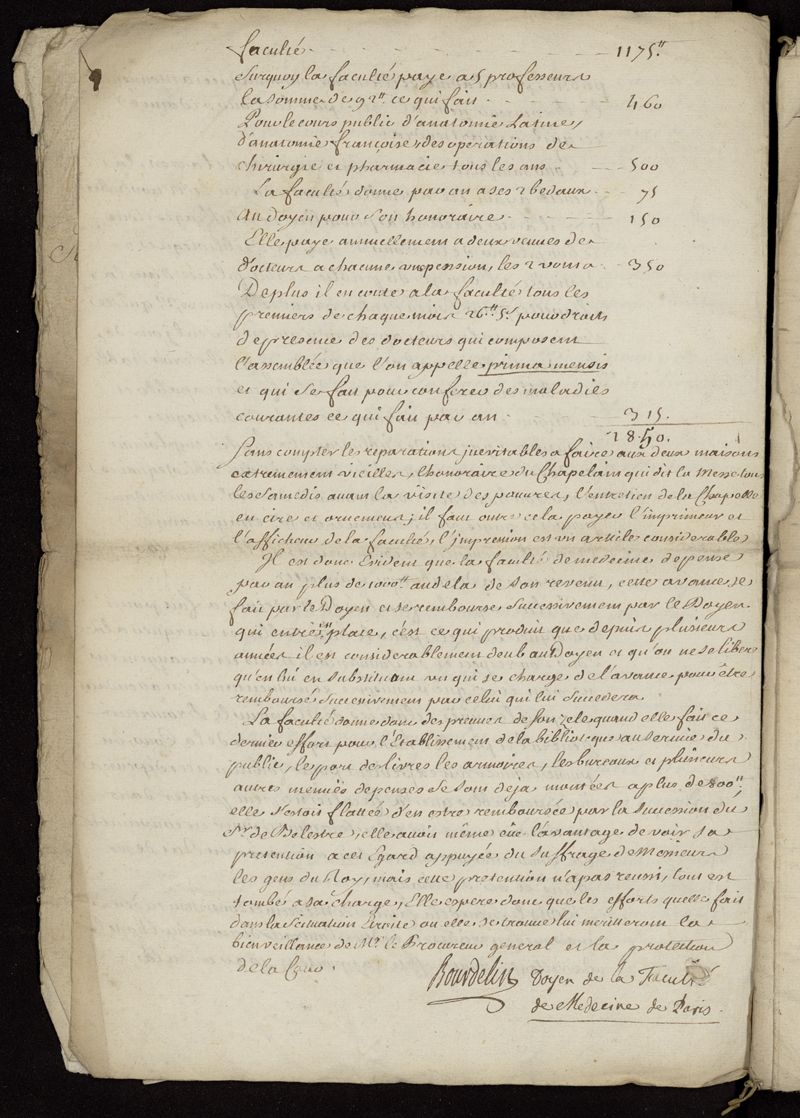 faculté - - - - - 1175.ʰ
Surquoy la faculté paye a 5 professeurs
la somme de 92ʰ ce qui fait - - - 460
Pour le cours public d'anatomie Latine,
d'anatomie françoise, des operations de
chirurgie et pharmacie tous les ans - - 500
La faculté donne par an a ses 2 bedaux - - 75
Au doyen pour son honoraire - - - 150
Elle paye annuellement a deux veuves de
docteurs a chacune une pension, les 2 vont a - 350
De plus il en coute a la faculté tous les
premiers de chaque mois 26ʰ 5ˢ pour droits
de presence des docteurs qui composent
l'assemblée que l'on appelle prima mensis
et qui se fait pour conferer des maladies
courantes ce qui fait par an - - 315.
1850.
Sans compter les reparations inevitables a faire aux deux maisons
extremement vieilles, l'honoraire du Chapelain qui dit la Messe tous
les Samedis avant la visite des pauvres, l'entretien de la Chapelle
en cire et ornemens; il faut outre cela payer l'imprimeur et
l'afficheur de la faculté, l'impression est un article considerable
Il est donc Evident que la faculté de medecine depense
par an plus de 1000ʰ audela de son revenu, cette avance se
fait par le Doyen et se rembourse Successivement par le Doyen
qui entre en place, c'est ce qui produit que depuis plusieurs
années il est considerablement deub au Doyen et qu'on ne se libere
qu'en lui en substituant un qui se charge de l'avance pour être
remboursé Successivement par celui qui lui Succedera
La faculté donne donc des preuves de son zele quand elle fait ce
dernier effort pour l'Etablissement de la biblioteque au service du
public, le port de livres les armoires, les bureaux et plusieurs
autres menues depenses se sont deja montées a plus de 800ʰ,
elle s'estoit flattée d'en estre remboursée par la Succession du
Sʳ. de Belestre, elle avoit même eüe l'avantage de voir sa
pretention a cet Egard appuyée du suffrage de Messieurs
les gens du Roy, mais cette pretention n'a pas reussi, tout est
tombé a sa charge, Elle espere donc que les efforts quelle fait
dans la Scituation Etroite ou elle se trouve lui meriteront la
bienveillance de Mʳ. le Procureur general et la protection
de la Cour.
Bourdelin Doyen de la Faculté
de Medecine de Paris.